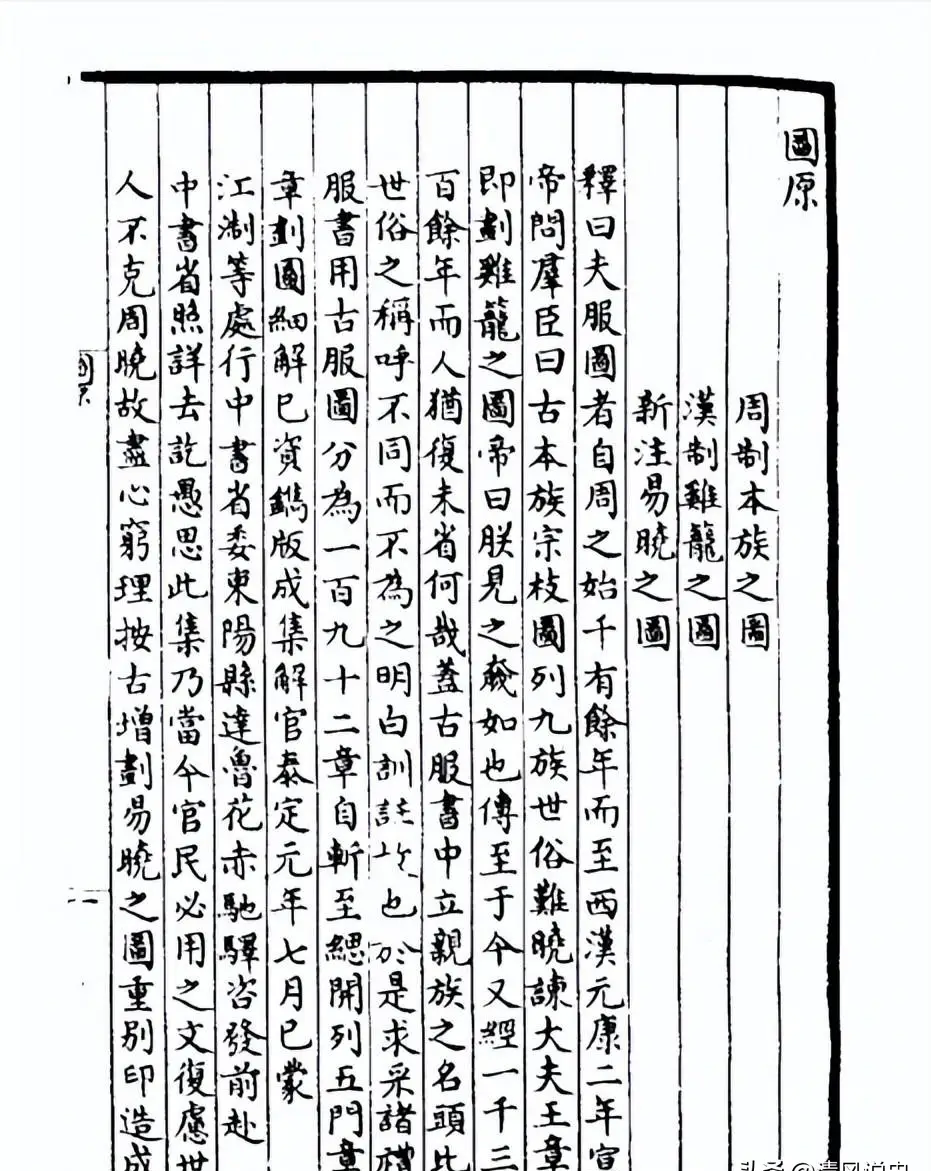 圖原
周制本族之圖
漢制雞籠之圖
新注易曉之圖
釋曰夫服圖者自周之始千有餘年而至西漢元康二年宣
帝問羣臣曰古本族宗枝圖列九族世俗難曉諫大夫王章
即劃雞籠之圖帝曰朕見之義如也傳至于今又經一千三
百餘年而人猶復未省何哉蓋古服書中立親族之名頭比
世俗之稱呼不同而不為之明白訓註故也於是求采諸禮
服書用古服圖分為一百九十二章自斬至緦開列五門章
章劃圖細解已資鐫版成集解官泰定元年七月已蒙
江淛等處行中書省委東陽縣達魯花赤馳驛咨發前赴
中書省照詳去訖愚思此集乃當今官民必用之文復慮世
人不克周曉故盡心窮理按古增劃易曉之圖重別印造成
圖原
一
头条@清风说史